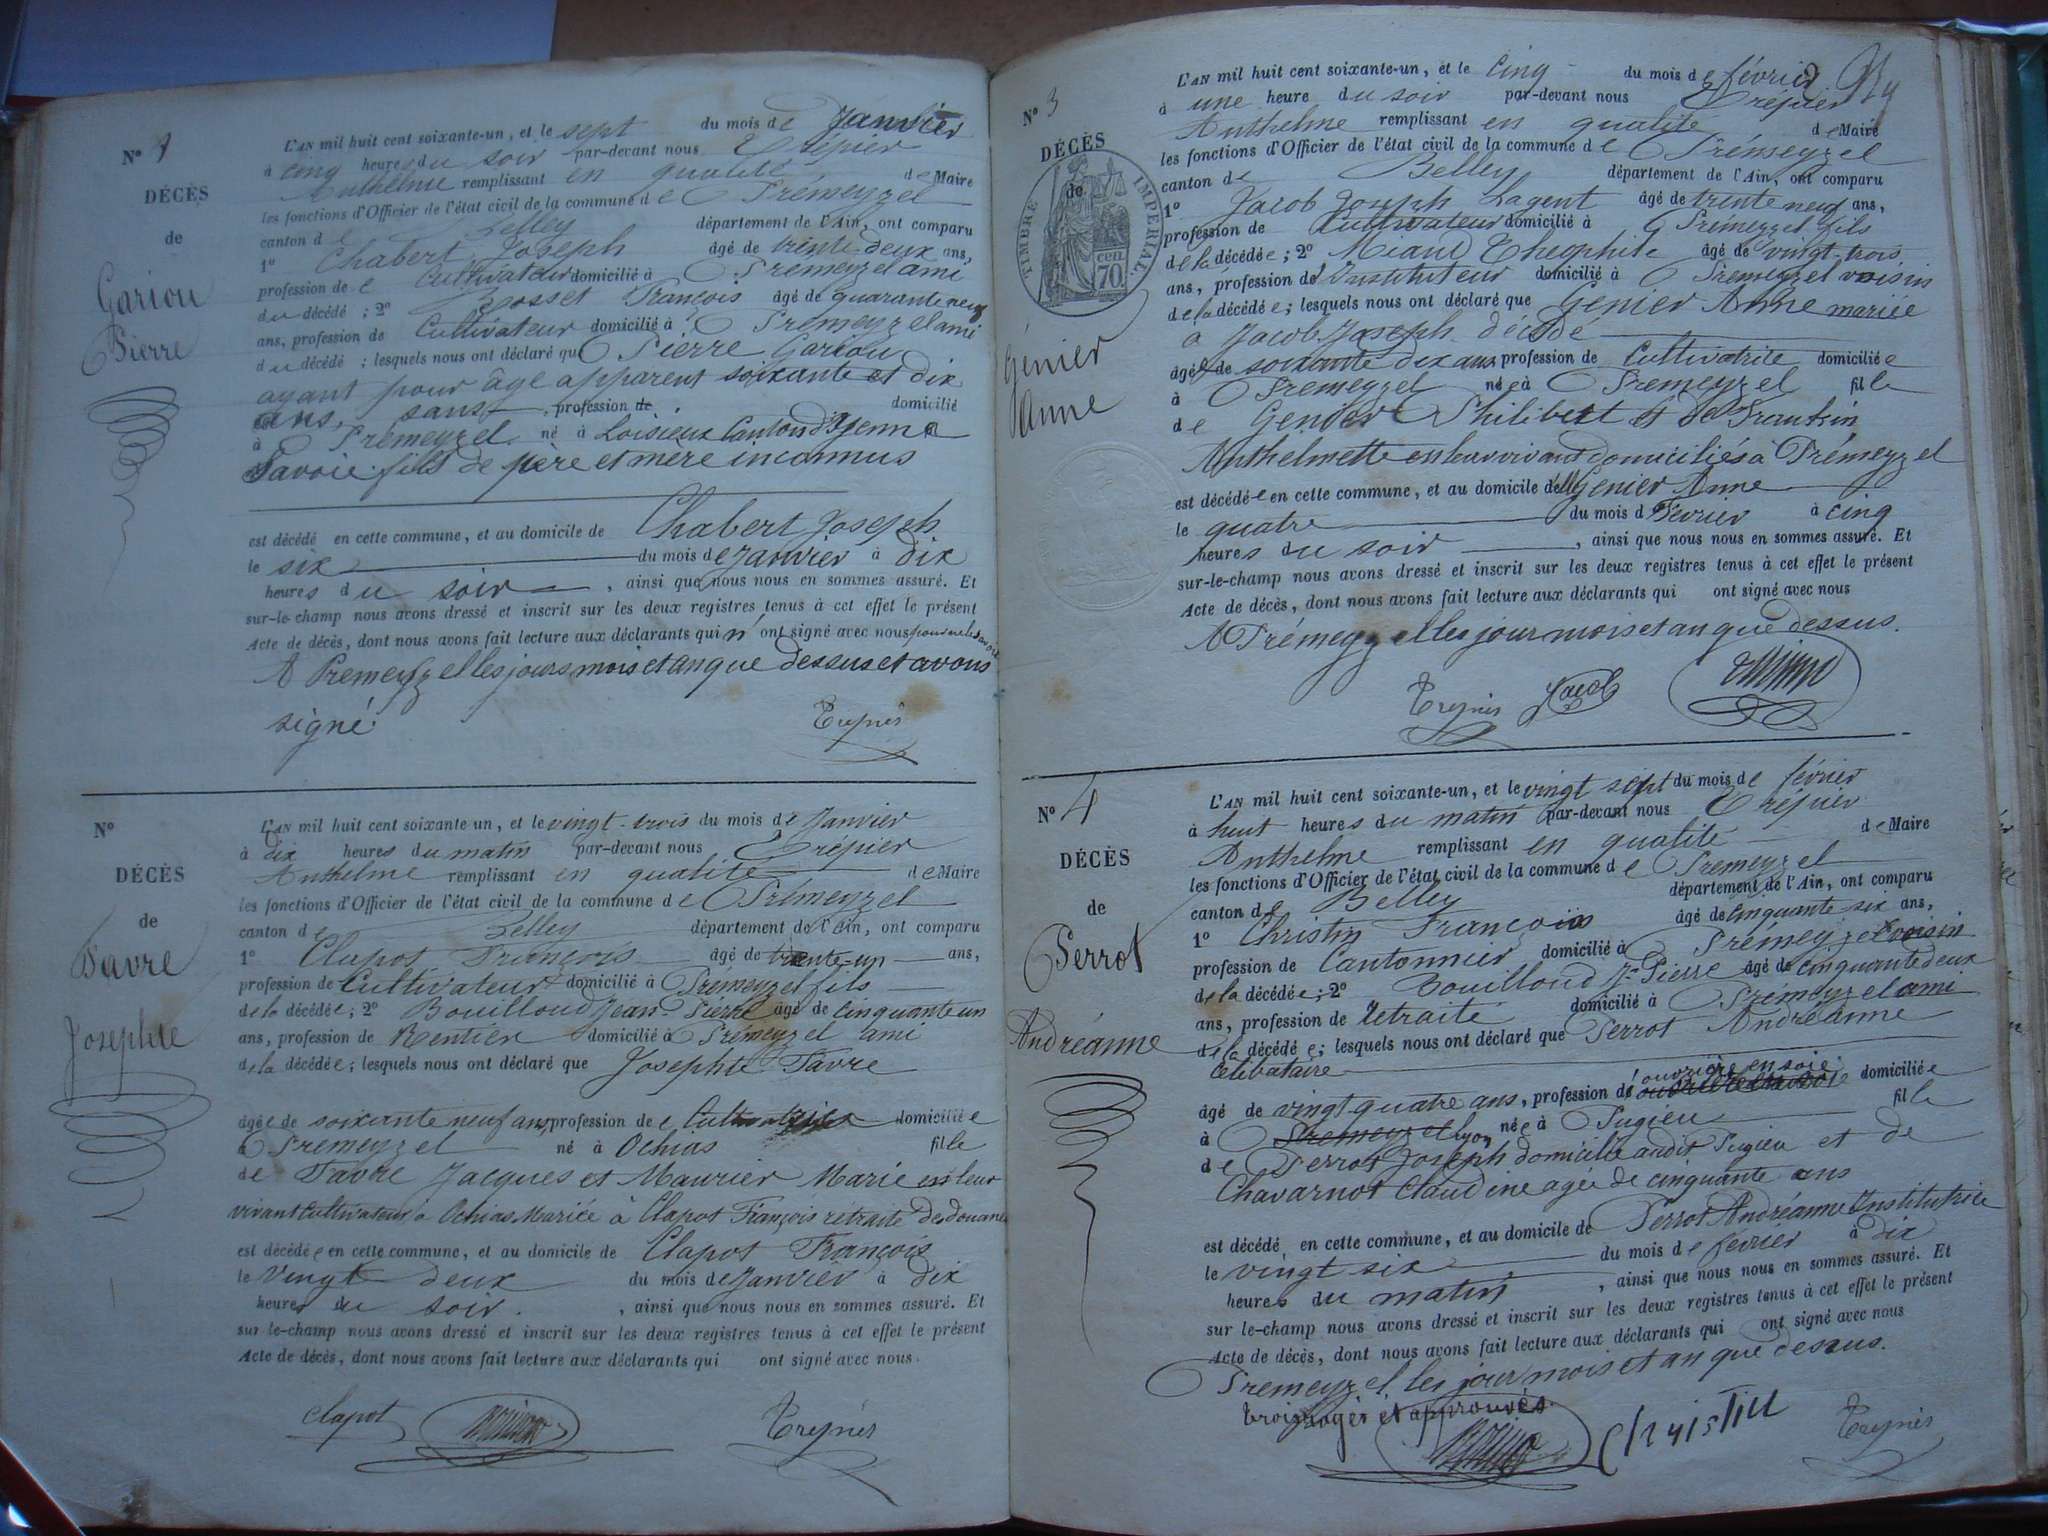 N° 1
DÉCÈS
de
Gariou
Pierre
L'AN mil huit cent soixante-un, et le sept du mois de Janvier
à cinq heures du soir par-devant nous Trépier
Anthelme remplissant en qualité de Maire
les fonctions d'Officier de l'état civil de la commune de Prémeyzel
canton de Belley département de l'Ain, ont comparu
1° Chabert Joseph âgé de trente deux ans,
profession de Cultivateur domicilié à Prémeyzel ami
du décédé ; 2° Rosset François âgé de quarante neuf
ans, profession de Cultivateur domicilié à Prémeyzel ami
du décédé ; lesquels nous ont déclaré que Pierre Gariou
ayant pour âge apparent soixante et dix
ans, sans profession de domicilié
à Prémeyzel né à Loisieux Canton d'Yenne
Savoie fils de père et mère inconnus
est décédé en cette commune, et au domicile de Chabert Joseph
le six du mois de Janvier à dix
heures du soir , ainsi que nous nous en sommes assuré. Et
sur-le-champ nous avons dressé et inscrit sur les deux registres tenus à cet effet le présent
Acte de décès, dont nous avons fait lecture aux déclarants qui n'ont signé avec nous pour ne le savoir
A Premeyzel les jours mois et an que dessus et avons
signé
Trepier
N°
DÉCÈS
de
Favre
Josephte
L'AN mil huit cent soixante-un, et le vingt-trois du mois de Janvier
à dix heures du matin par-devant nous Trépier
Anthelme remplissant en qualité de Maire
les fonctions d'Officier de l'état civil de la commune de Prémeyzel
canton de Belley département de l'Ain, ont comparu
1° Clapot François âgé de trente-un ans,
profession de Cultivateur domicilié à Prémeyzel fils
de la décédée ; 2° Bouilloud Jean-Pierre âgé de Cinquante un
ans, profession de Rentier domicilié à Prémeyzel ami
de la décédée ; lesquels nous ont déclaré que Josephte Favre
âgée de soixante neuf ans, profession de Cultivatrice domiciliée
à Premeyzel né à Ochias fille
de Favre Jacques et Maurier Marie en leur
vivant Cultivateurs à Ochias Mariée à Clapot François retraité des douanes
est décédée en cette commune, et au domicile de Clapot François
le vingt deux du mois de Janvier à dix
heures du soir. , ainsi que nous nous en sommes assuré. Et
sur le-champ nous avons dressé et inscrit sur les deux registres tenus à cet effet le présent
Acte de décès, dont nous avons fait lecture aux déclarants qui ont signé avec nous.
Clapot Trepier
N° 3
DÉCÈS
de
TIMBRE IMPÉRIAL
70 CEN
Génier
Anne
L'AN mil huit cent soixante-un, et le cinq du mois de février
à une heure du soir par-devant nous Trépier
Anthelme remplissant en qualité de Maire
les fonctions d'Officier de l'état civil de la commune de Prémeyzel
canton de Belley département de l'Ain, ont comparu
1° Jacob Joseph Lagent âgé de trente neuf ans,
profession de Cultivateur domicilié à Prémeyzel fils
de la décédée ; 2° Miand Theophile âgé de vingt-trois
ans, profession d'Instituteur domicilié à Premeyzel voisin
de la décédée ; lesquels nous ont déclaré que Genier Anne mariée
à Jacob Joseph décédé
âgée de soixante dix ans profession de Cultivatrice domiciliée
à Premeyzel née à Premeyzel fille
de Genier Philibert et de Frantzin
Anthelmette en leur vivant domiciliés à Prémeyzel
est décédée en cette commune, et au domicile de Genier Anne
le quatre du mois de Février à cinq
heures du soir , ainsi que nous nous en sommes assuré. Et
sur-le-champ nous avons dressé et inscrit sur les deux registres tenus à cet effet le présent
Acte de décès, dont nous avons fait lecture aux déclarants qui ont signé avec nous
A Prémeyzel les jour mois et an que dessus.
Trepier Jacob
N° 4
DÉCÈS
de
Perrot
Andréanne
L'AN mil huit cent soixante-un, et le vingt sept du mois de février
à huit heures du matin par-devant nous Trépier
Anthelme remplissant en qualité de Maire
les fonctions d'Officier de l'état civil de la commune de Premeyzel
canton de Belley département de l'Ain, ont comparu
1° Christin François âgé de cinquante six ans,
profession de Cantonnier domicilié à Prémeyzel voisin
de la décédée ; 2° Bouilloud Jn Pierre âgé de cinquante deux
ans, profession de retraité domicilié à Prémeyzel ami
de la décédée ; lesquels nous ont déclaré que Perrot Andréanne
Célibataire
ouvrière en soie
âgé de vingt quatre ans, profession de domiciliée
à Premeyzel Lyon née à Pugieu fille
de Perrot Joseph domicilié audit Pugieu et de
Chavarnot Claudine agée de cinquante ans
est décédé en cette commune, et au domicile de Perrot Andréanne Institutrice
le vingt six du mois de février à dix
heures du matin , ainsi que nous nous en sommes assuré. Et
sur le-champ nous avons dressé et inscrit sur les deux registres tenus à cet effet le présent
Acte de décès, dont nous avons fait lecture aux déclarants qui ont signé avec nous
Premeyzel les jour mois et an que dessus.
trois rayés et approuvés
Christin Trepier